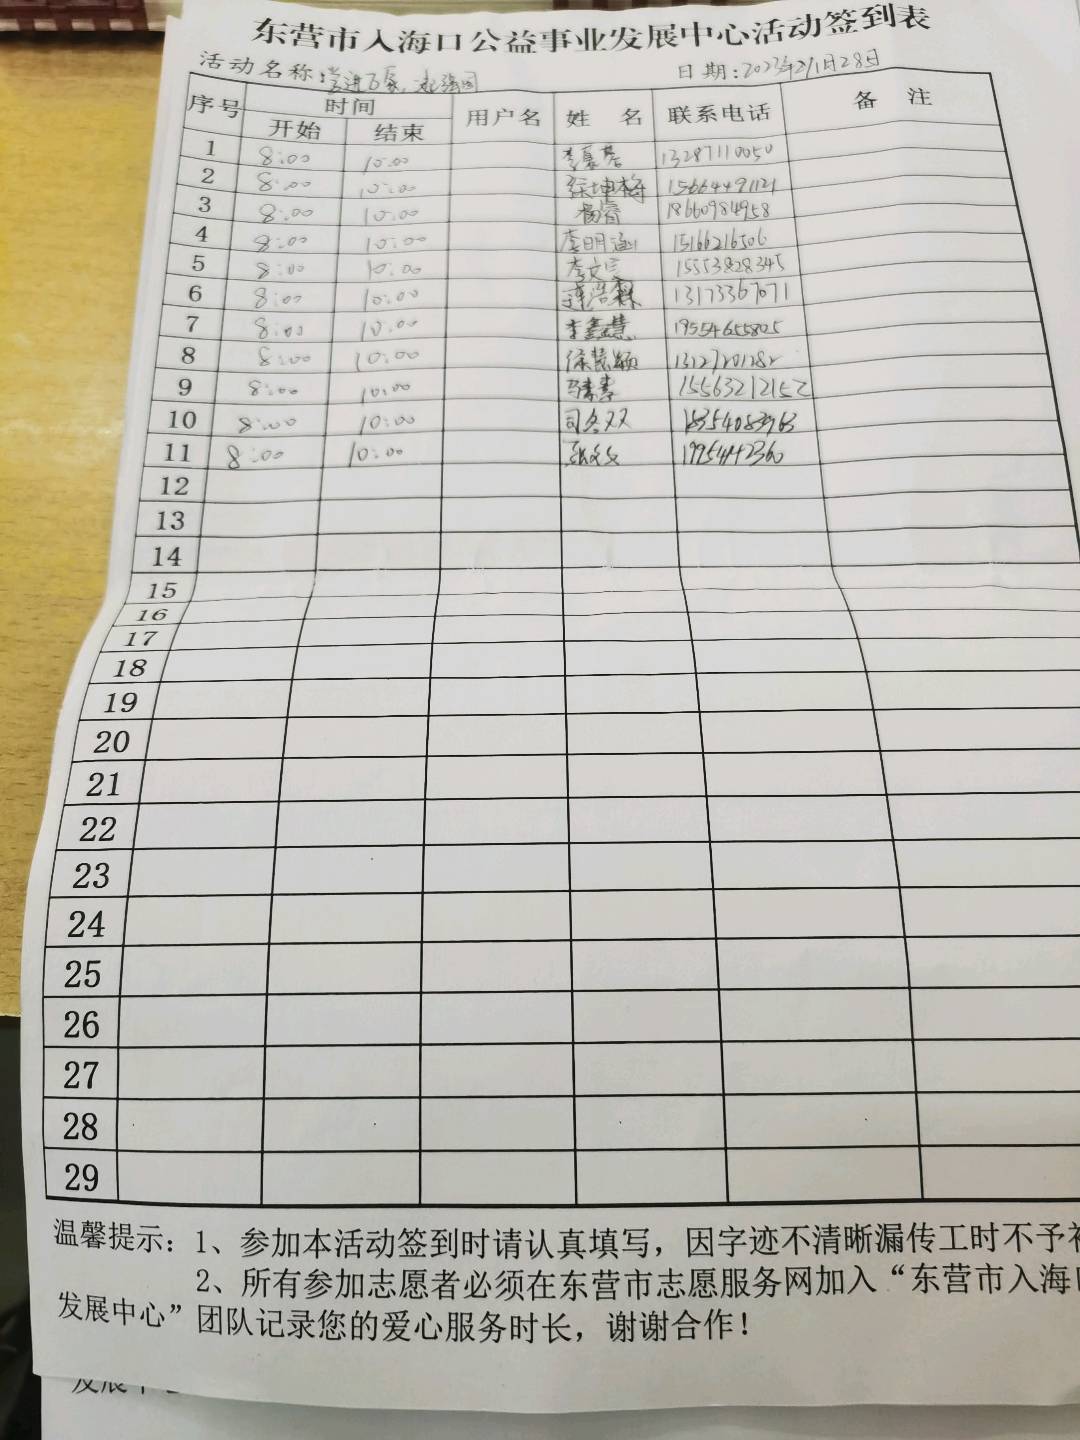 东营市入海口公益事业发展中心活动签到表
活动名称: 日期:
序号 时间 用户名 姓 名 联系电话 备 注
开始 结束
1 8:00 10:00 13287110050
2 8:00 10:00 张坤梅 15664491121
3 8:00 10:00 杨睿 18660984958
4 8:00 10:00 李明涵 15166216506
5 8:00 10:00 15553828345
6 8:00 10:00 13173367071
7 8:00 10:00 李鑫慧 19554655805
8 8:00 10:00 徐慧颖 13127201282
9 8:00 10:00 15563212152
10 8:00 10:00 司冬双 18354083963
11 8:00 10:00 张文文
12
13
14
15
16
17
18
19
20
21
22
23
24
25
26
27
28
29
温馨提示：1、参加本活动签到时请认真填写，因字迹不清晰漏传工时不予补
2、所有参加志愿者必须在东营市志愿服务网加入“东营市入海口
发展中心”团队记录您的爱心服务时长，谢谢合作！